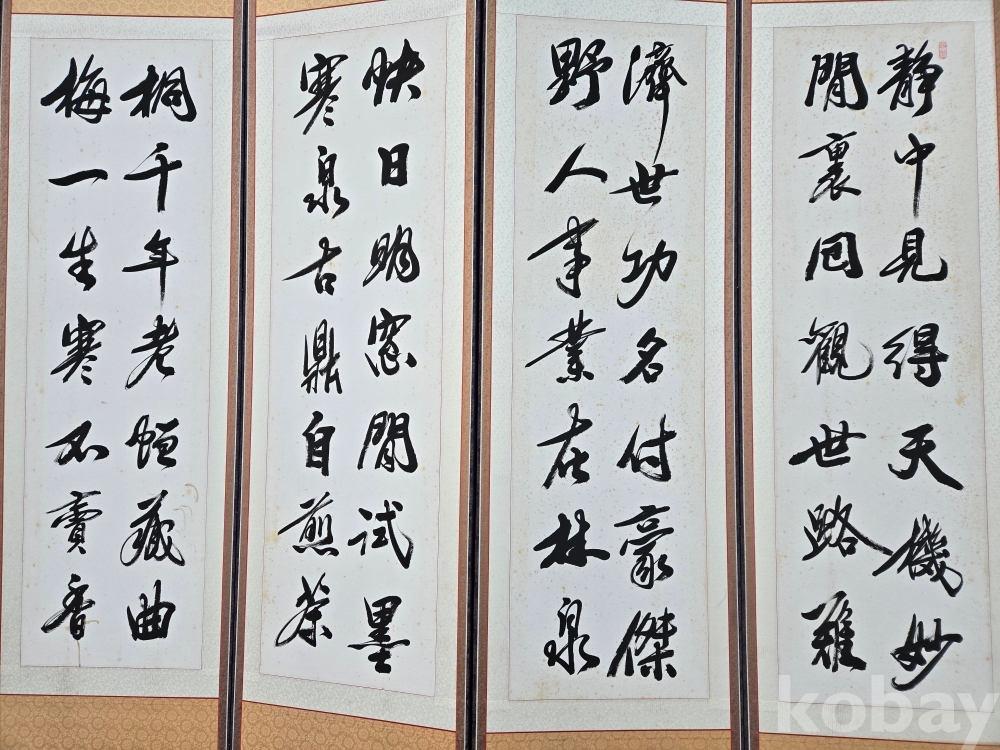 靜中見得天機妙
閒裏回觀世路難
濟世功名付豪傑
野人事業在林泉
快日明窓閒試墨
寒泉古鼎自煎茶
桐千年老恒藏曲
梅一生寒不賣香
kobay